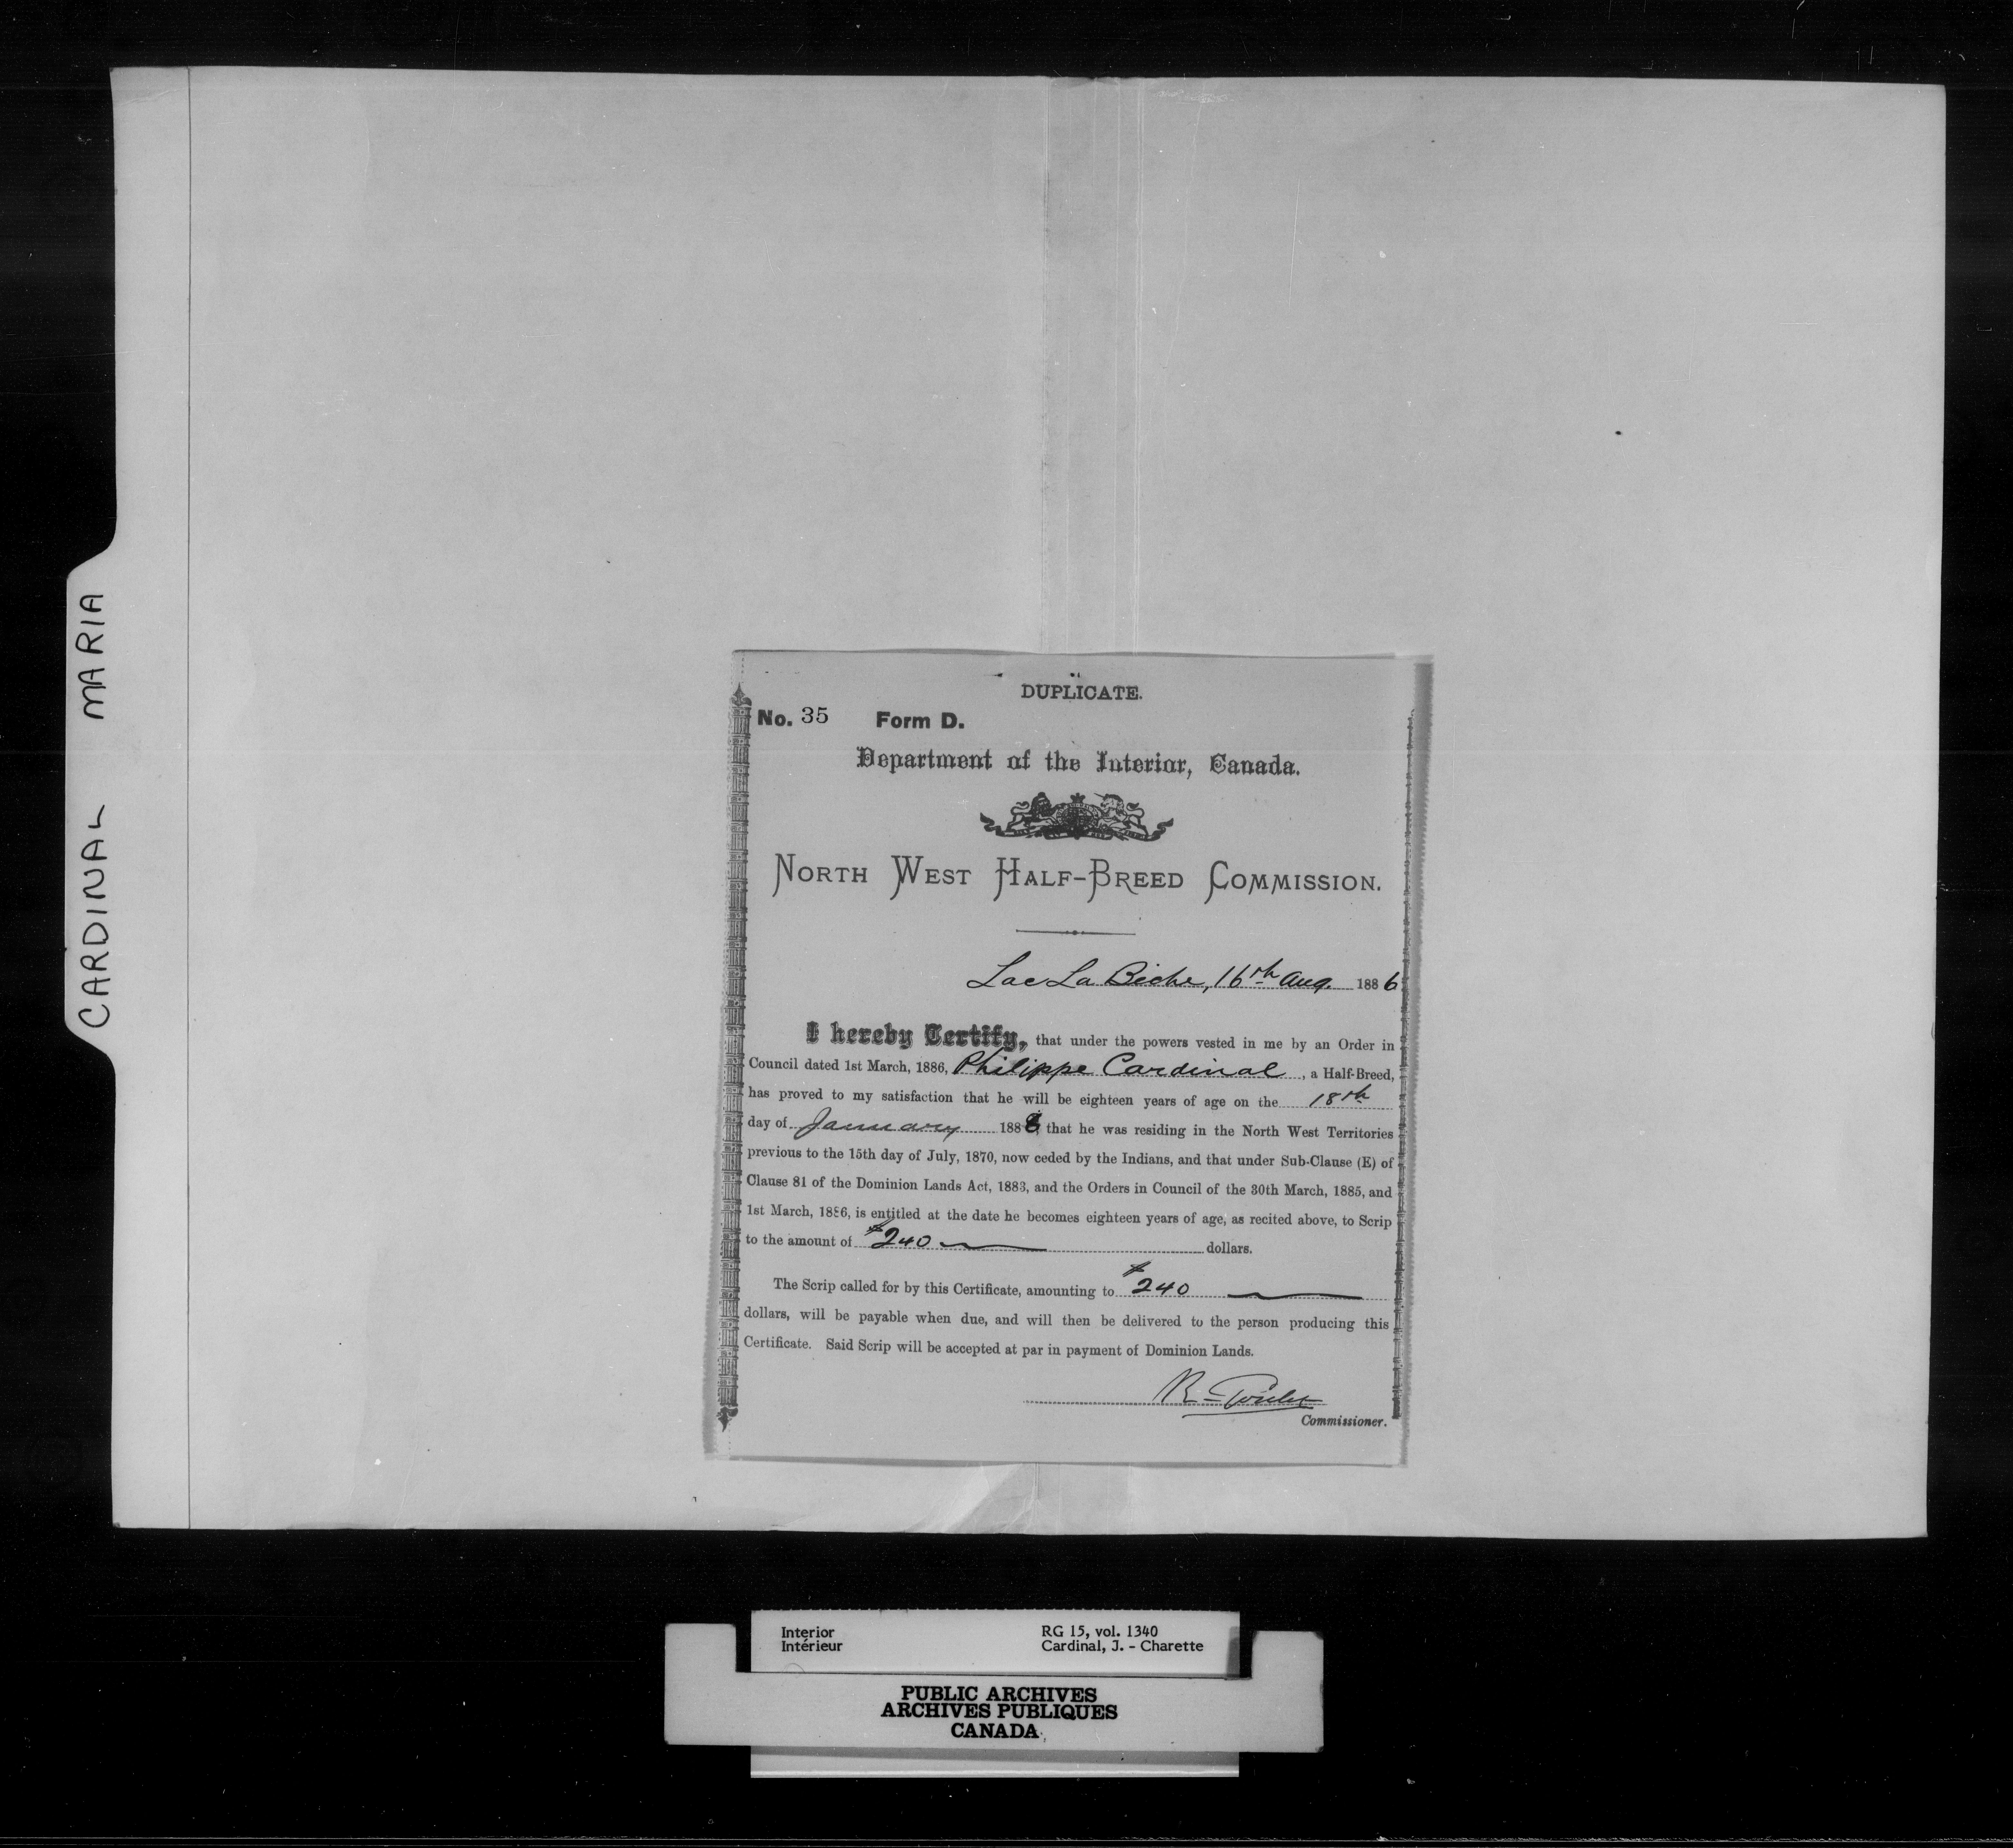 CARDINAL MARIA
DUPLICATE.
No. 35 Form D.
Department of the Interior, Canada.
NORTH WEST HALF-BREED COMMISSION.
Lac La Biche, 16th Aug. 1886
I hereby Certify, that under the powers vested in me by an Order in
Council dated 1st March, 1886, Philippe Cardinal, a Half-Breed,
has proved to my satisfaction that he will be eighteen years of age on the 18th
day of January 1888 that he was residing in the North West Territories
previous to the 15th day of July, 1870, now ceded by the Indians, and that under Sub-Clause (E) of
Clause 81 of the Dominion Lands Act, 1883, and the Orders in Council of the 30th March, 1885, and
1st March, 1886, is entitled at the date he becomes eighteen years of age, as recited above, to Scrip
to the amount of $240 dollars.
The Scrip called for by this Certificate, amounting to $240
dollars, will be payable when due, and will then be delivered to the person producing this
Certificate. Said Scrip will be accepted at par in payment of Dominion Lands.
R. Goulet
Commissioner.
Interior RG 15, vol. 1340
Intérieur Cardinal, J. - Charette
PUBLIC ARCHIVES
ARCHIVES PUBLIQUES
CANADA